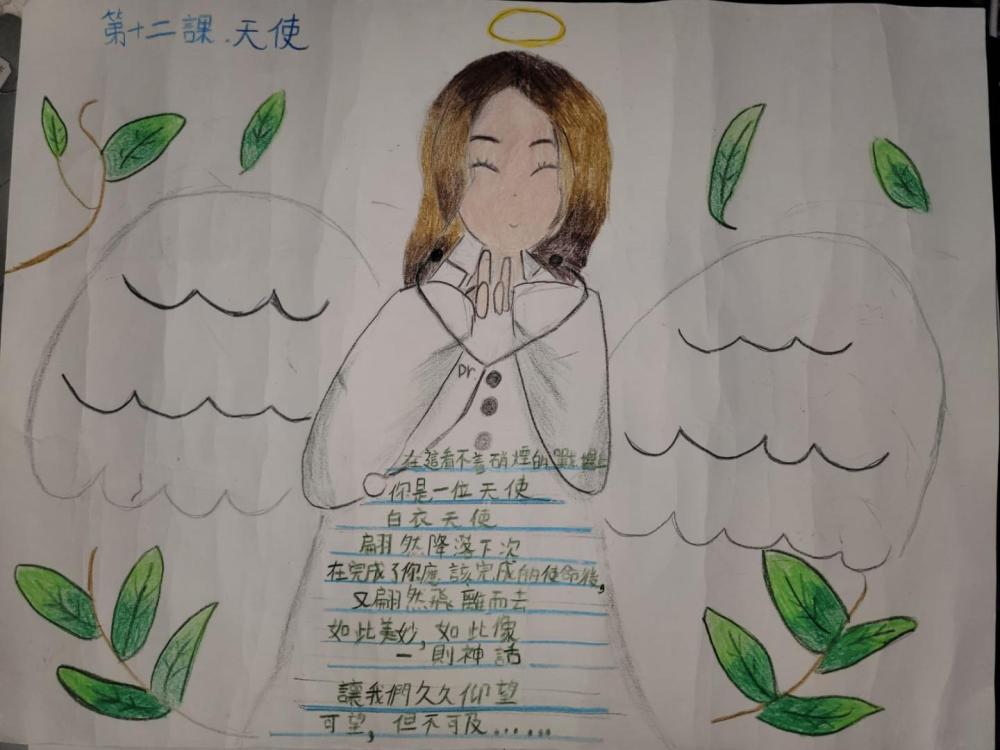 第十二課.天使
Dr.
在這看不着硝煙的戰場上
你是一位天使
白衣天使
翩然降落下次
在完成了你應該完成的使命後,
又翩然飛離而去
如此美妙,如此像
一則神話
讓我們久久仰望
可望,但不可及......